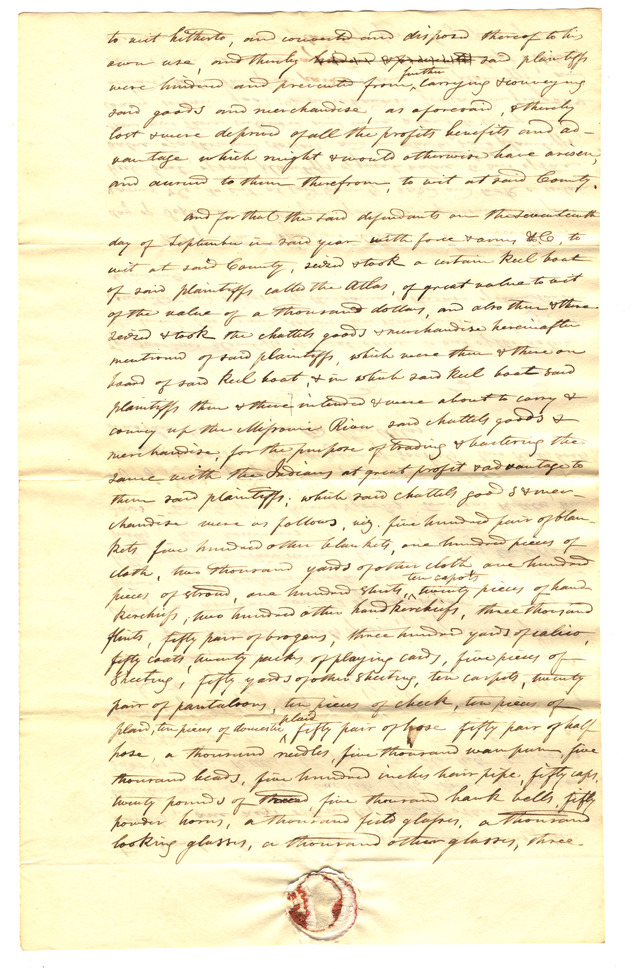 to wit hitherto, and converted and disposed thereof to his
own use, and thereby said plaintiffs
were hindered and prevented from further carrying & conveying
said goods and merchandise, as aforesaid, & thereby
lost & were deprived of all the profits benefits and ad-
vantage which might & would otherwise have arisen,
and accrued to them therefrom, to wit at said County.
And for that the said defendants on the seventeenth
day of September in said year with force & arms &C, to
wit at said County, seized & took a certain keel boat
of said plaintiffs called the Atlas, of great value to wit
of the value of a thousand dollars, and also then & there
seized & took the chattels goods & merchandise hereinafter
mentioned of said plaintiffs, which were then & there on
board of said keel boat, & in which said keel boat said
plaintiffs then & there intended & were about to carry &
convey up the Missourie River said chattels goods &
merchandise, for the purpose of trading & bartering the
same with the Indians at great profit & advantage to
them said plaintiffs; which said chattels goods & mer-
chandise were as follows, viz. five hundred pair of blan-
kets five hundred other blankets, one hundred pieces of
cloth, two thousand yards of other cloth, one hundred
pieces of stroud, one hundred shirts, ten capots twenty pieces of hand-
kerchiefs, two hundred other handkerchiefs, three thousand
flints, fifty pair of brogans, three hundred yards of calico,
fifty coats, twenty packs of playing cards, five pieces of
sheeting, fifty yards of other sheeting, ten carpots, twenty
pair of pantaloons, ten pieces of check, ten pieces of
plaid, ten pieces of domestic plaid, fifty pair of hose fifty pair of half
hose, a thousand needles, five thousand wampum, five
thousand beads, five hundred inches hair pipe, fifty caps,
twenty pounds of thread, five thousand hawk bells, fifty
powder horns, a thousand field glasses, a thousand
looking glasses, a thousand other glasses, three